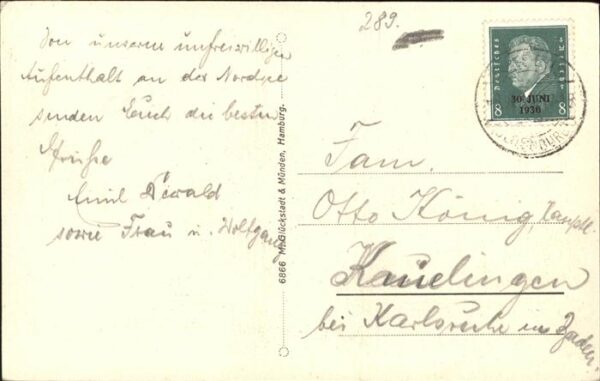 289.
Von unserem unfreiwilligen
Aufenthalt an der Nordsee
senden Euch die besten
Grüsse
Emil
sowie Frau u. Wolfgang
6866 M. Glückstadt & Münden, Hamburg.
Deutsches Reich
30. JUNI
1930
8 8
Fam.
Otto König
bei Karlsruhe in Baden.